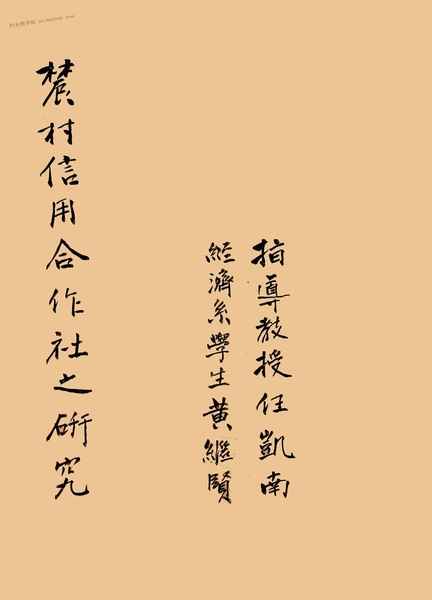 指導教授任凱南
經濟系學生黃繼賢
農村信用合作社之研究